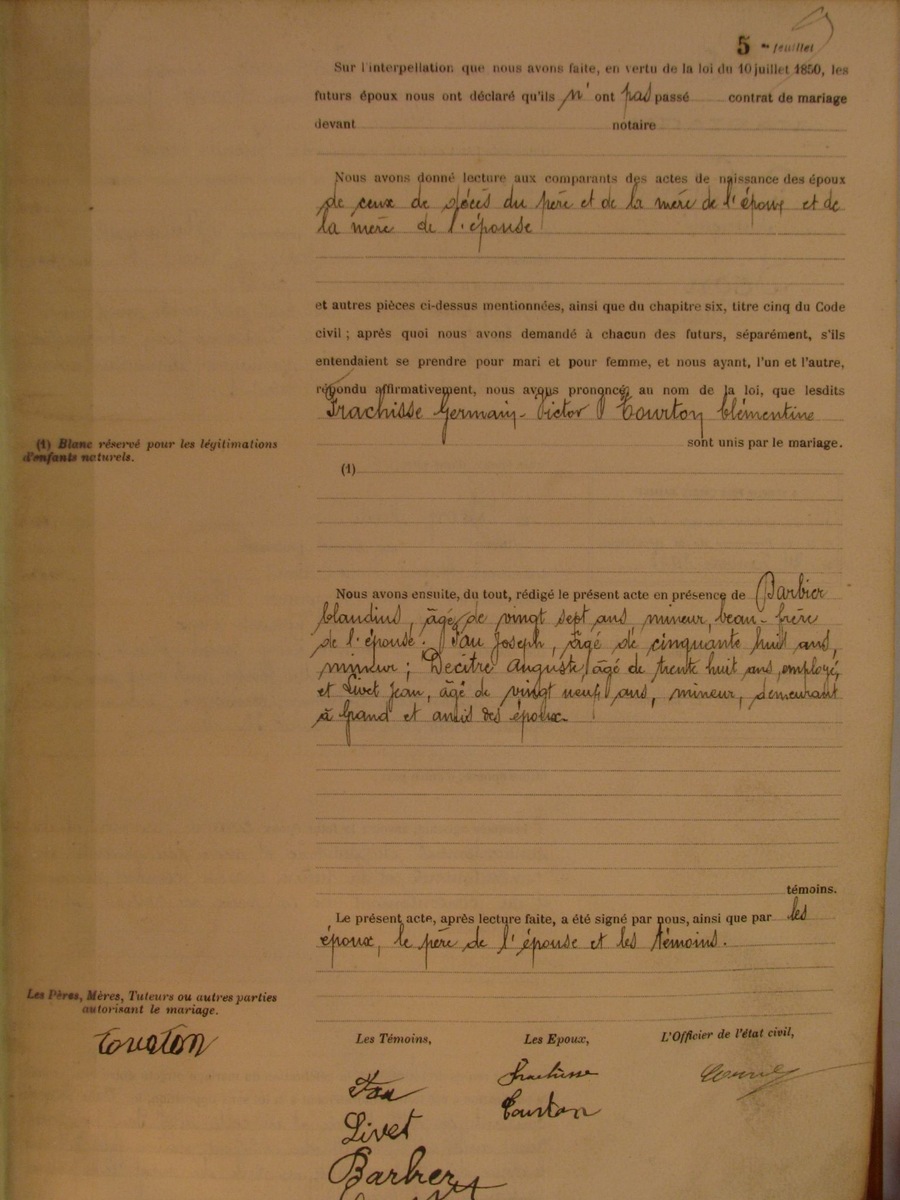 5 me feuillet
Sur l'interpellation que nous avons faite, en vertu de la loi du 10 juillet 1850, les
futurs époux nous ont déclaré qu'ils n' ont pas passé contrat de mariage
devant notaire
Nous avons donné lecture aux comparants des actes de naissance des époux
de ceux de décès du père et de la mère de l'époux et de
la mère de l'épouse
et autres pièces ci-dessus mentionnées, ainsi que du chapitre six, titre cinq du Code
civil ; après quoi nous avons demandé à chacun des futurs, séparément, s'ils
entendaient se prendre pour mari et pour femme, et nous ayant, l'un et l'autre,
répondu affirmativement, nous avons prononcé, au nom de la loi, que lesdits
Frachisse Germain-Victor & Tourton Clémentine
sont unis par le mariage.
(1) Blanc réservé pour les légitimations
d'enfants naturels.
(1)
Nous avons ensuite, du tout, rédigé le présent acte en présence de Barbier
Claudius, âgé de vingt sept ans mineur, beau-frère
de l'épouse. Fau Joseph, âgé de cinquante huit ans,
mineur ; Decitre Auguste, âgé de trente huit ans, employé,
et Livet Jean, âgé de vingt neuf ans, mineur, demeurant
à Grand et amis des époux.
témoins.
Le présent acte, après lecture faite, a été signé par nous, ainsi que par les
époux, le père de l'épouse et les témoins.
Les Pères, Mères, Tuteurs ou autres parties
autorisant le mariage.
Tourton
Les Témoins,
Les Epoux,
L'Officier de l'état civil,
Frachisse
Fau
Tourton
Livet
Barbier